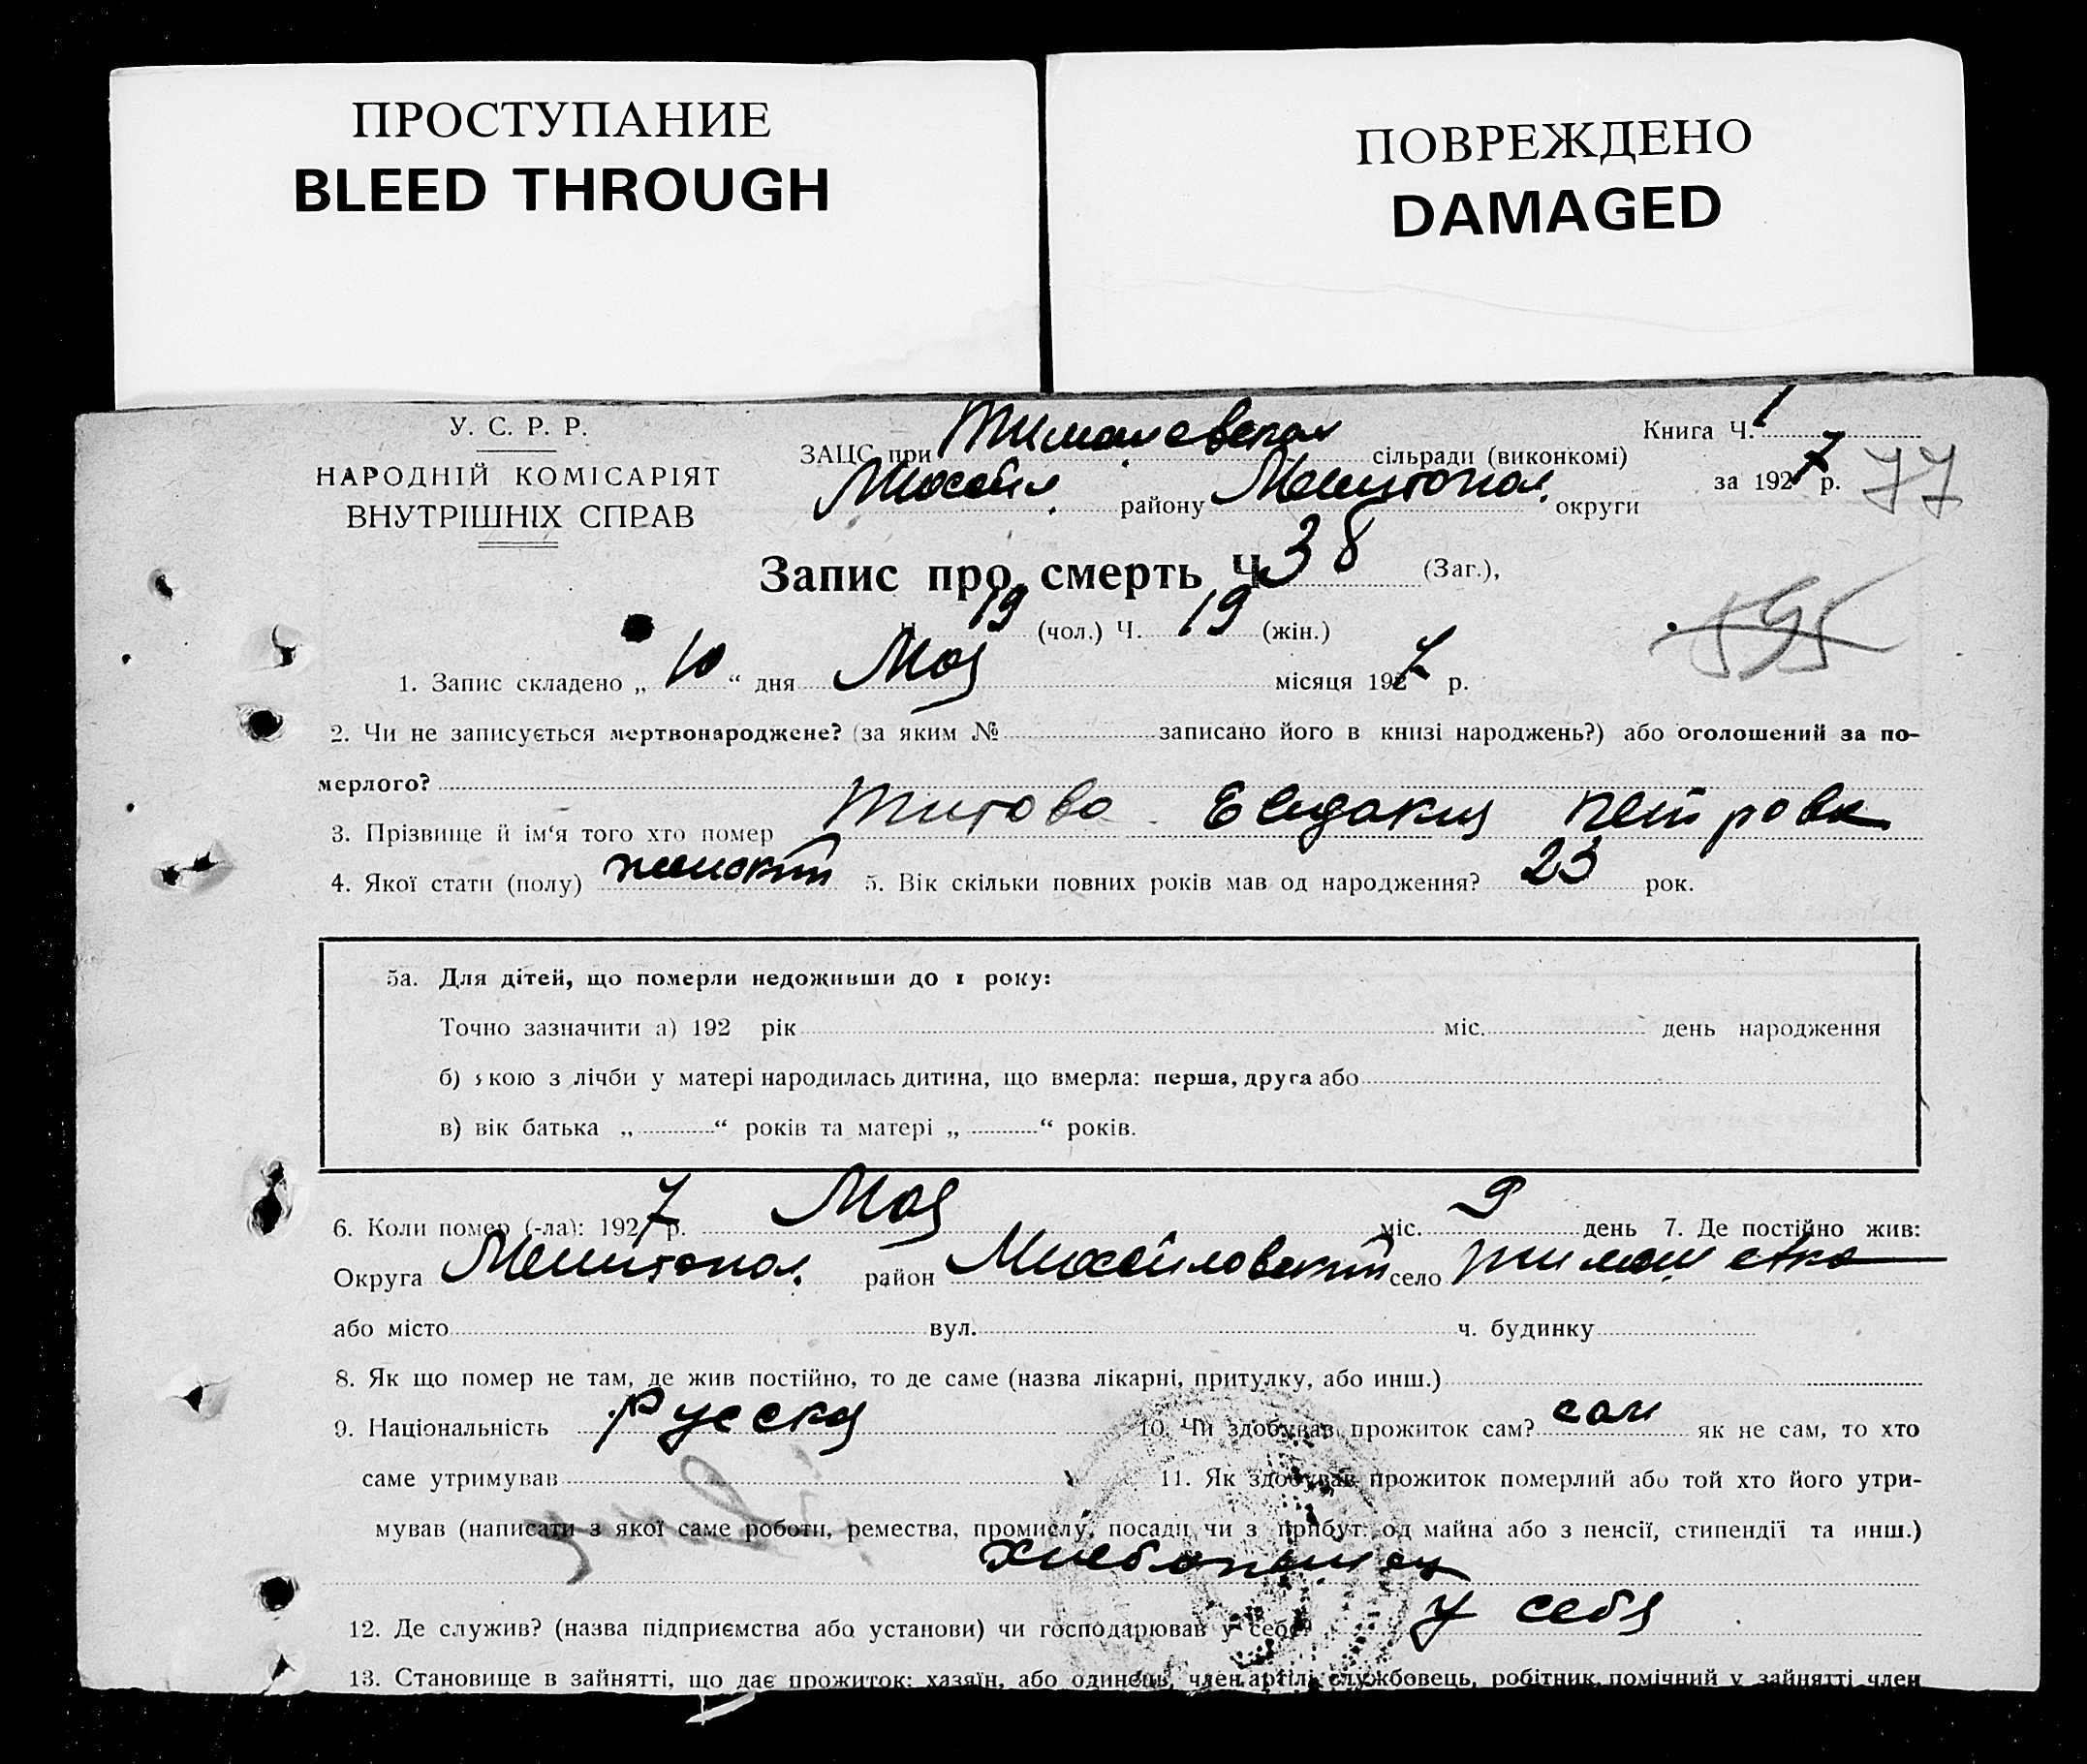 ПРОСТУПАНИЕ
BLEED THROUGH
ПОВРЕЖДЕНО
DAMAGED
У. С. Р. Р.
НАРОДНІЙ КОМІСАРІЯТ
ВНУТРІШНІХ СПРАВ
ЗАЦС при Тимошевском сільради (виконкомі)
Михайл. району Мелитопол. округи
Книга Ч. 1
за 1927 р. 77
Запис про смерть Ч. 38 (Заг.),
Ч. 19 (чол.) Ч. 19 (жін.)
595
1. Запис складено „ 10 “ дня Мая місяця 1927 р.
2. Чи не записується мертвонароджене? (за яким № записано його в книзі народжень?) або оголошений за по-
мерлого?
3. Прізвище й ім‘я того хто помер Титова Евдокия Петровн
4. Якої стати (полу) женский 5. Вік скільки повних років мав од народження? 23 рок.
5а. Для дітей, що померли недоживши до 1 року:
Точно зазначити а) 192 рік міс. день народження
б) якою з лічби у матері народилась дитина, що вмерла: перша, друга або
в) вік батька „ “ років та матері „ “ років.
6. Коли помер (-ла): 1927 р. Мая міс. 9 день 7. Де постійно жив:
Округа Мелитопол. район Михайловский село Тимошевка
або місто вул. ч. будинку
8. Як що помер не там, де жив постійно, то де саме (назва лікарні, притулку, або инш.)
9. Національність Русская 10. Чи здобував прожиток сам? сам як не сам, то хто
саме утримував 11. Як здобував прожиток померлий або той хто його утри-
мував (написати з якої саме роботи, ремества, промислу, посади чи з прибут. од майна або з пенсії, стипендії та инш.)
Хлебопашец
12. Де служив? (назва підприємства або установи) чи господарював у себе? у себя
13. Становище в зайнятті, що дає прожиток: хазяїн, або одинець, член артілі, службовець, робітник, помічний у зайнятті член